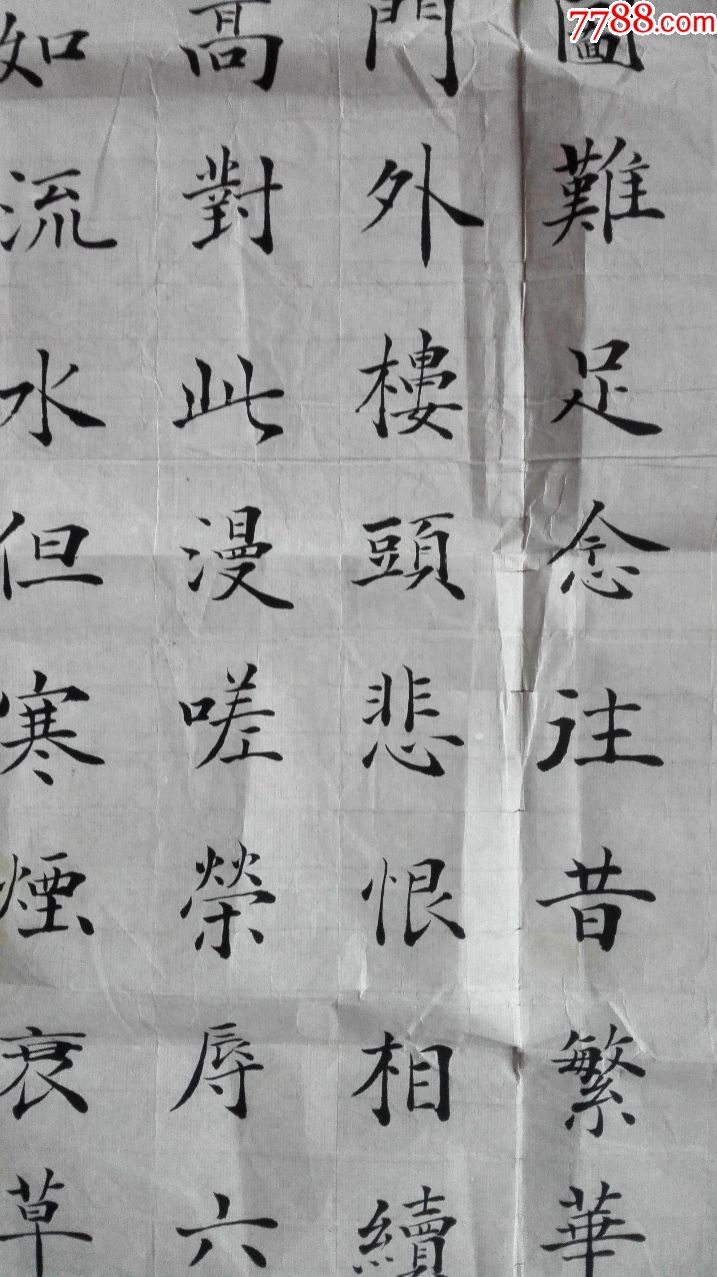 7788.com
圖難足念往昔繁華
門外樓頭悲恨相續
高對此漫嗟榮辱六
如流水但寒煙衰草